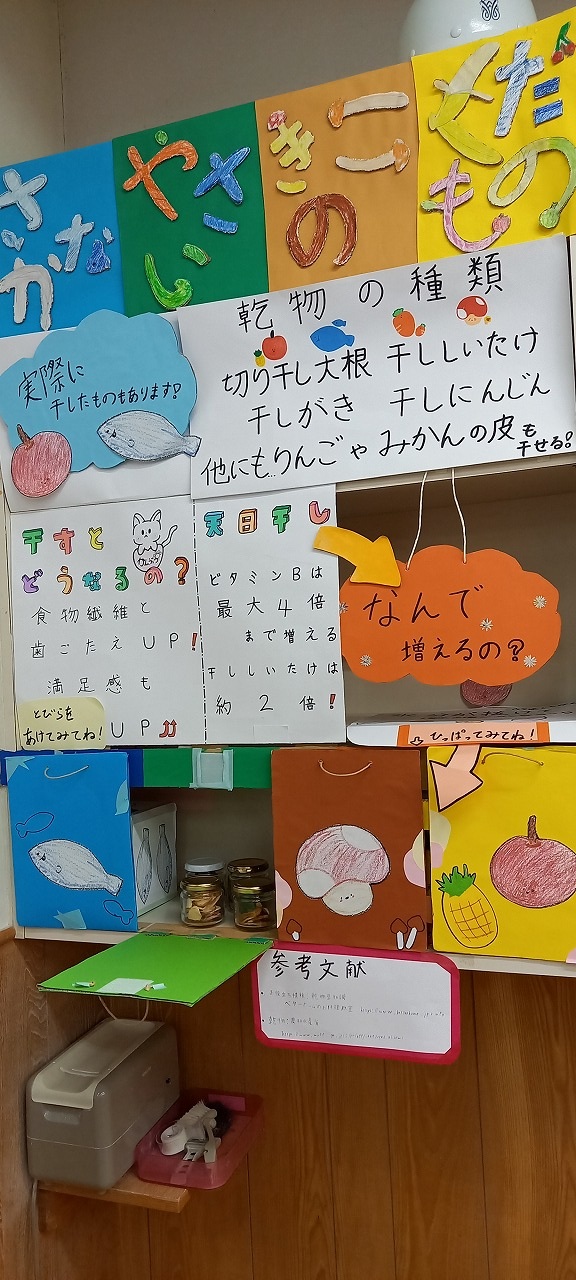 さかな
やさい
きのこ
くだもの
乾物の種類
切り干し大根 干ししいたけ
干しがき 干しにんじん
他にもりんごゃみかんの皮も
干せる!
実際に
干したものもあります!
干すと
どうなるの?
食物繊維と
歯ごたえUP!
満足感も
UP
とびらを
あけてみてね!
天日干し
ビタミンBは
最大4倍
まで増える
干ししいたけは
約2倍!
なんで
増えるの?
ひっぱってみてね!
参考文献